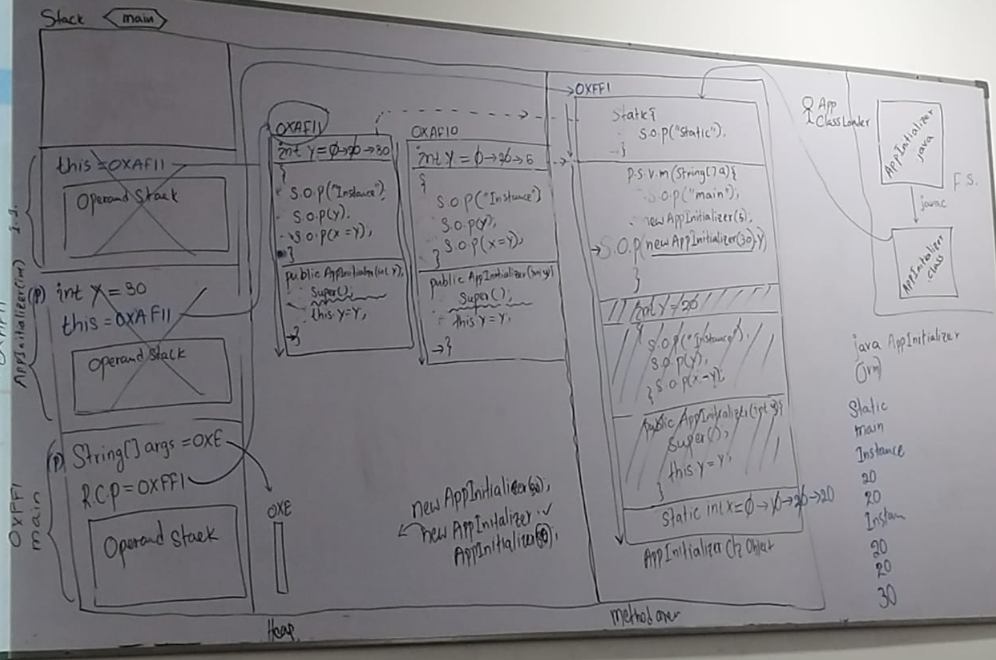 Stack
main
this = OXAF11
Operand Stack
I.I.
AppInitializer(int)
(P) int y = 30
this = OXAF11
Operand Stack
(P) String[] args = OXE
R.C.P = OXFF1
OXFF1
main
Operand Stack
OXAF11
int y = 0 → 20 → 30
{
S.O.P("Instance")
S.O.P(y),
S.O.P(x=y),
}
public AppInitializer(int y),
Super();
this.y=y,
}
OXAF10
int y = 0 → 20 → 5
{
S.O.P("Instance")
S.O.P(y),
S.O.P(x=y),
}
public AppInitializer(int y)
Super();
this y = y,
}
OXE
new AppInitializer
new AppInitializer
AppInitializer
Heap
OXFF1
Static{
S.O.P("Static").
}
p.s.v.m(String[] a){
S.O.P("main");
new AppInitializer(5),
S.O.P(new AppInitializer(30).y)
}
int y = 20
{
S.O.P("Instance")
S.O.P(y),
} S.O.P(x=y)
public AppInitializer(int y){
Super();
this y = y;
}
Static int x = 0 → 10 → 20 → 20
AppInitializer Object
App
ClassLoader
AppInitializer
java
F.S.
javac
AppInitializer
.class
java AppInitializer
(jvm)
Static
main
Instance
20
20
Instan
20
20
30